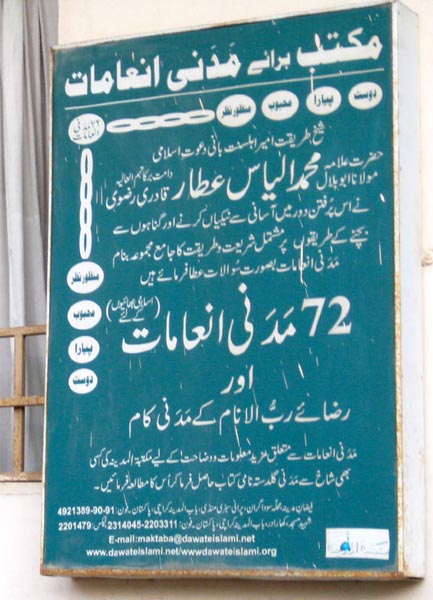 مکتب برائے مَدَنی انعامات
دوست پیارا محبوب منظورِ نظر
۷۲ مدنی انعامات
شیخِ طریقت امیرِ اہلسنت بانیِ دعوتِ اسلامی
حضرت علامہ مولانا ابو بلال محمد الیاس عطار قادری رضوی دامت برکاتہم العالیہ
نے اس پُرفتن دور میں آسانی سے نیکیاں کرنے اور گناہوں سے
بچنے کے طریقوں پر مشتمل شریعت و طریقت کا جامع مجموعہ بنام
مدنی انعامات بصورتِ سوالات عطا فرمائے ہیں
منظورِ نظر
محبوب
پیارا
دوست
72 مَدَنی انعامات (اسلامی بھائیوں کے لئے)
اور
رضائے ربُّ الانام کے مَدَنی کام
مَدَنی انعامات سے متعلق مزید معلومات و وضاحت کے لیے مکتبۃ المدینہ کی کسی
بھی شاخ سے مَدَنی گلدستہ نامی کتاب حاصل فرما کر اس کا مطالعہ فرمائیں۔
فیضانِ مدینہ، محلّہ سوداگران، پرانی سبزی منڈی، باب المدینہ کراچی، پاکستان۔ فون: 4921389-90-91
شہید مسجد، کھارادر، باب المدینہ کراچی، پاکستان۔ فون: 2314045-2203311 فیکس: 2201479
E-mail:maktaba@dawateislami.net
www.dawateislami.net/wwwdawateislami.org